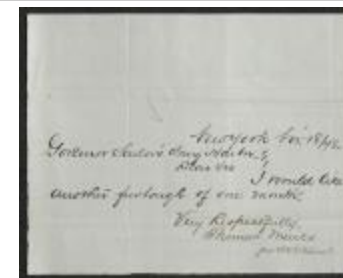 New York Nov 18/92
Governor Sailors' Snug Harbor
Dear Sir
I would like
another furlough of one month
Very Respectfully
Thomas